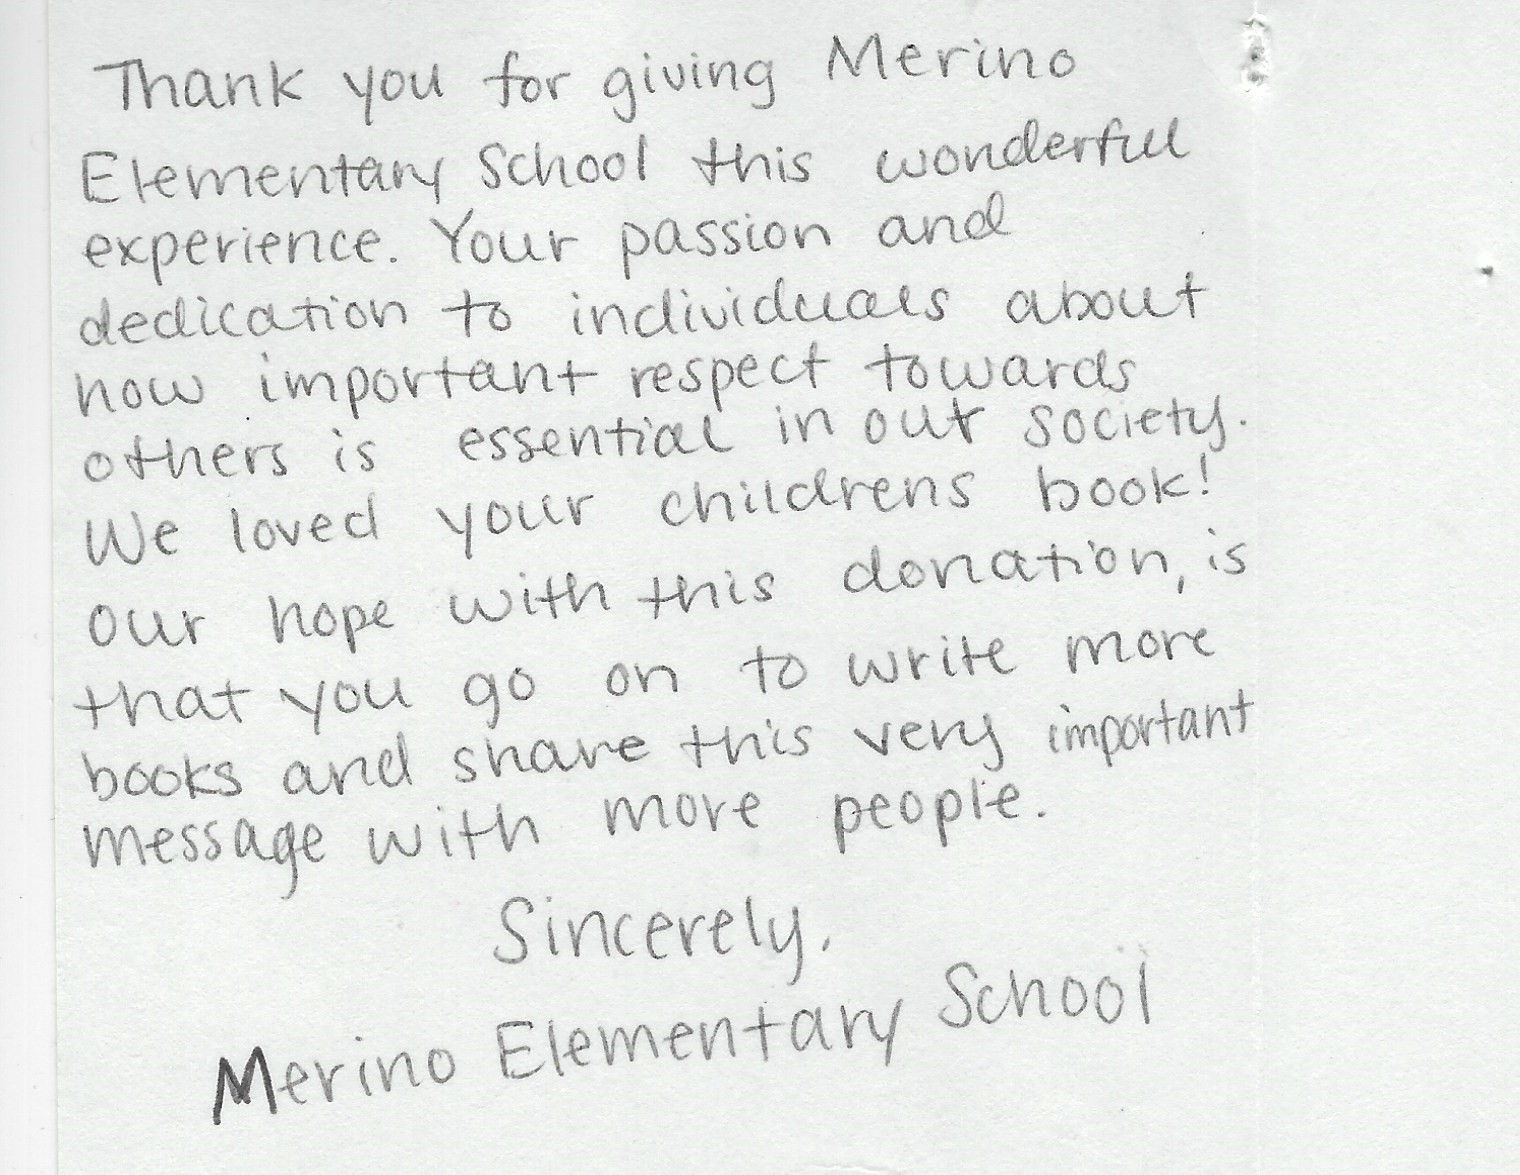 Thank you for giving Merino
Elementary School this wonderful
experience. Your passion and
dedication to individuals about
how important respect towards
others is essential in our society.
We loved your childrens book!
Our hope with this donation, is
that you go on to write more
books and share this very important
message with more people.
Sincerely,
Merino Elementary School